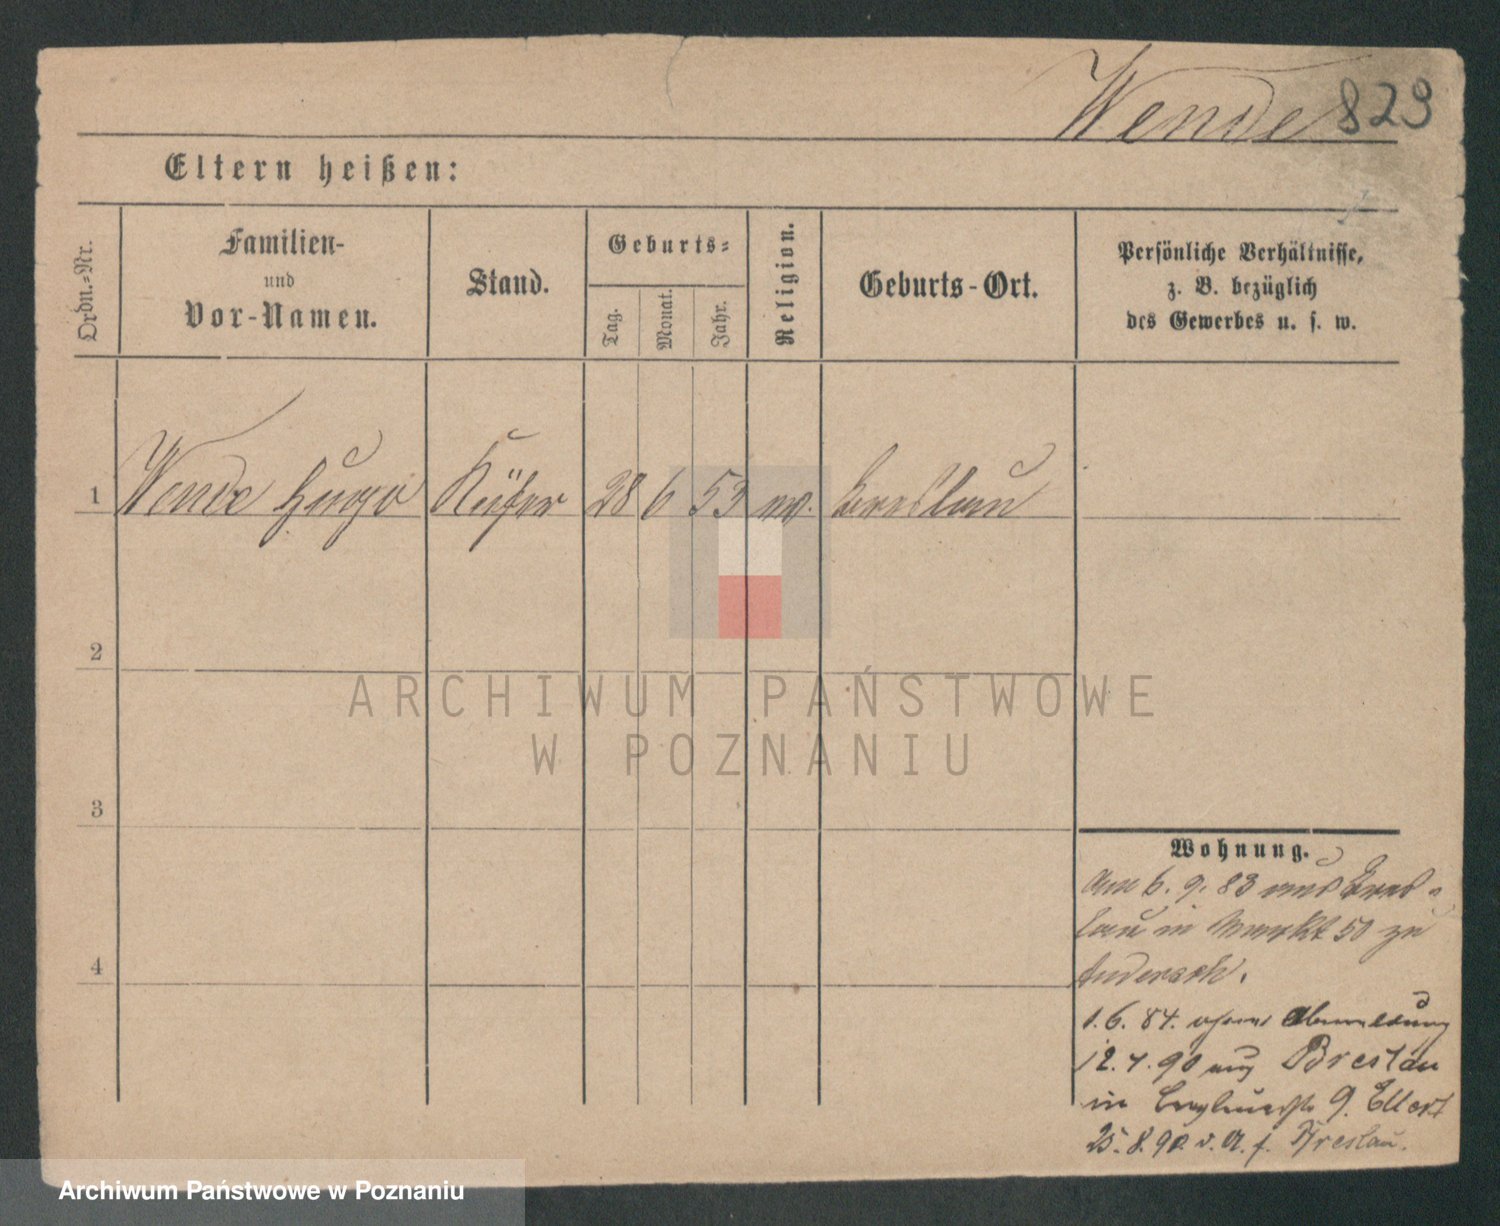 Wende 829
Eltern heißen:
Ordn.-Nr.
Familien-
und
Vor-Namen.
Stand.
Geburts-
Tag.
Monat.
Jahr.
Religion.
Geburts-Ort.
Persönliche Verhältnisse,
z. B. bezüglich
des Gewerbes u. s. w.
1 Wende Hugo Küfer 28 6 53 Breslau
2
3
4
Wohnung.
6. 9. 83 aus Bres-
lau in Markt 50 zu
1. 6. 84. ohne Abmeldung
12. 4. 90 aus Breslau
in
25. 8. 90. v. A. f. Breslau.
ARCHIWUM PAŃSTWOWE
W POZNANIU
Archiwum Państwowe w Poznaniu